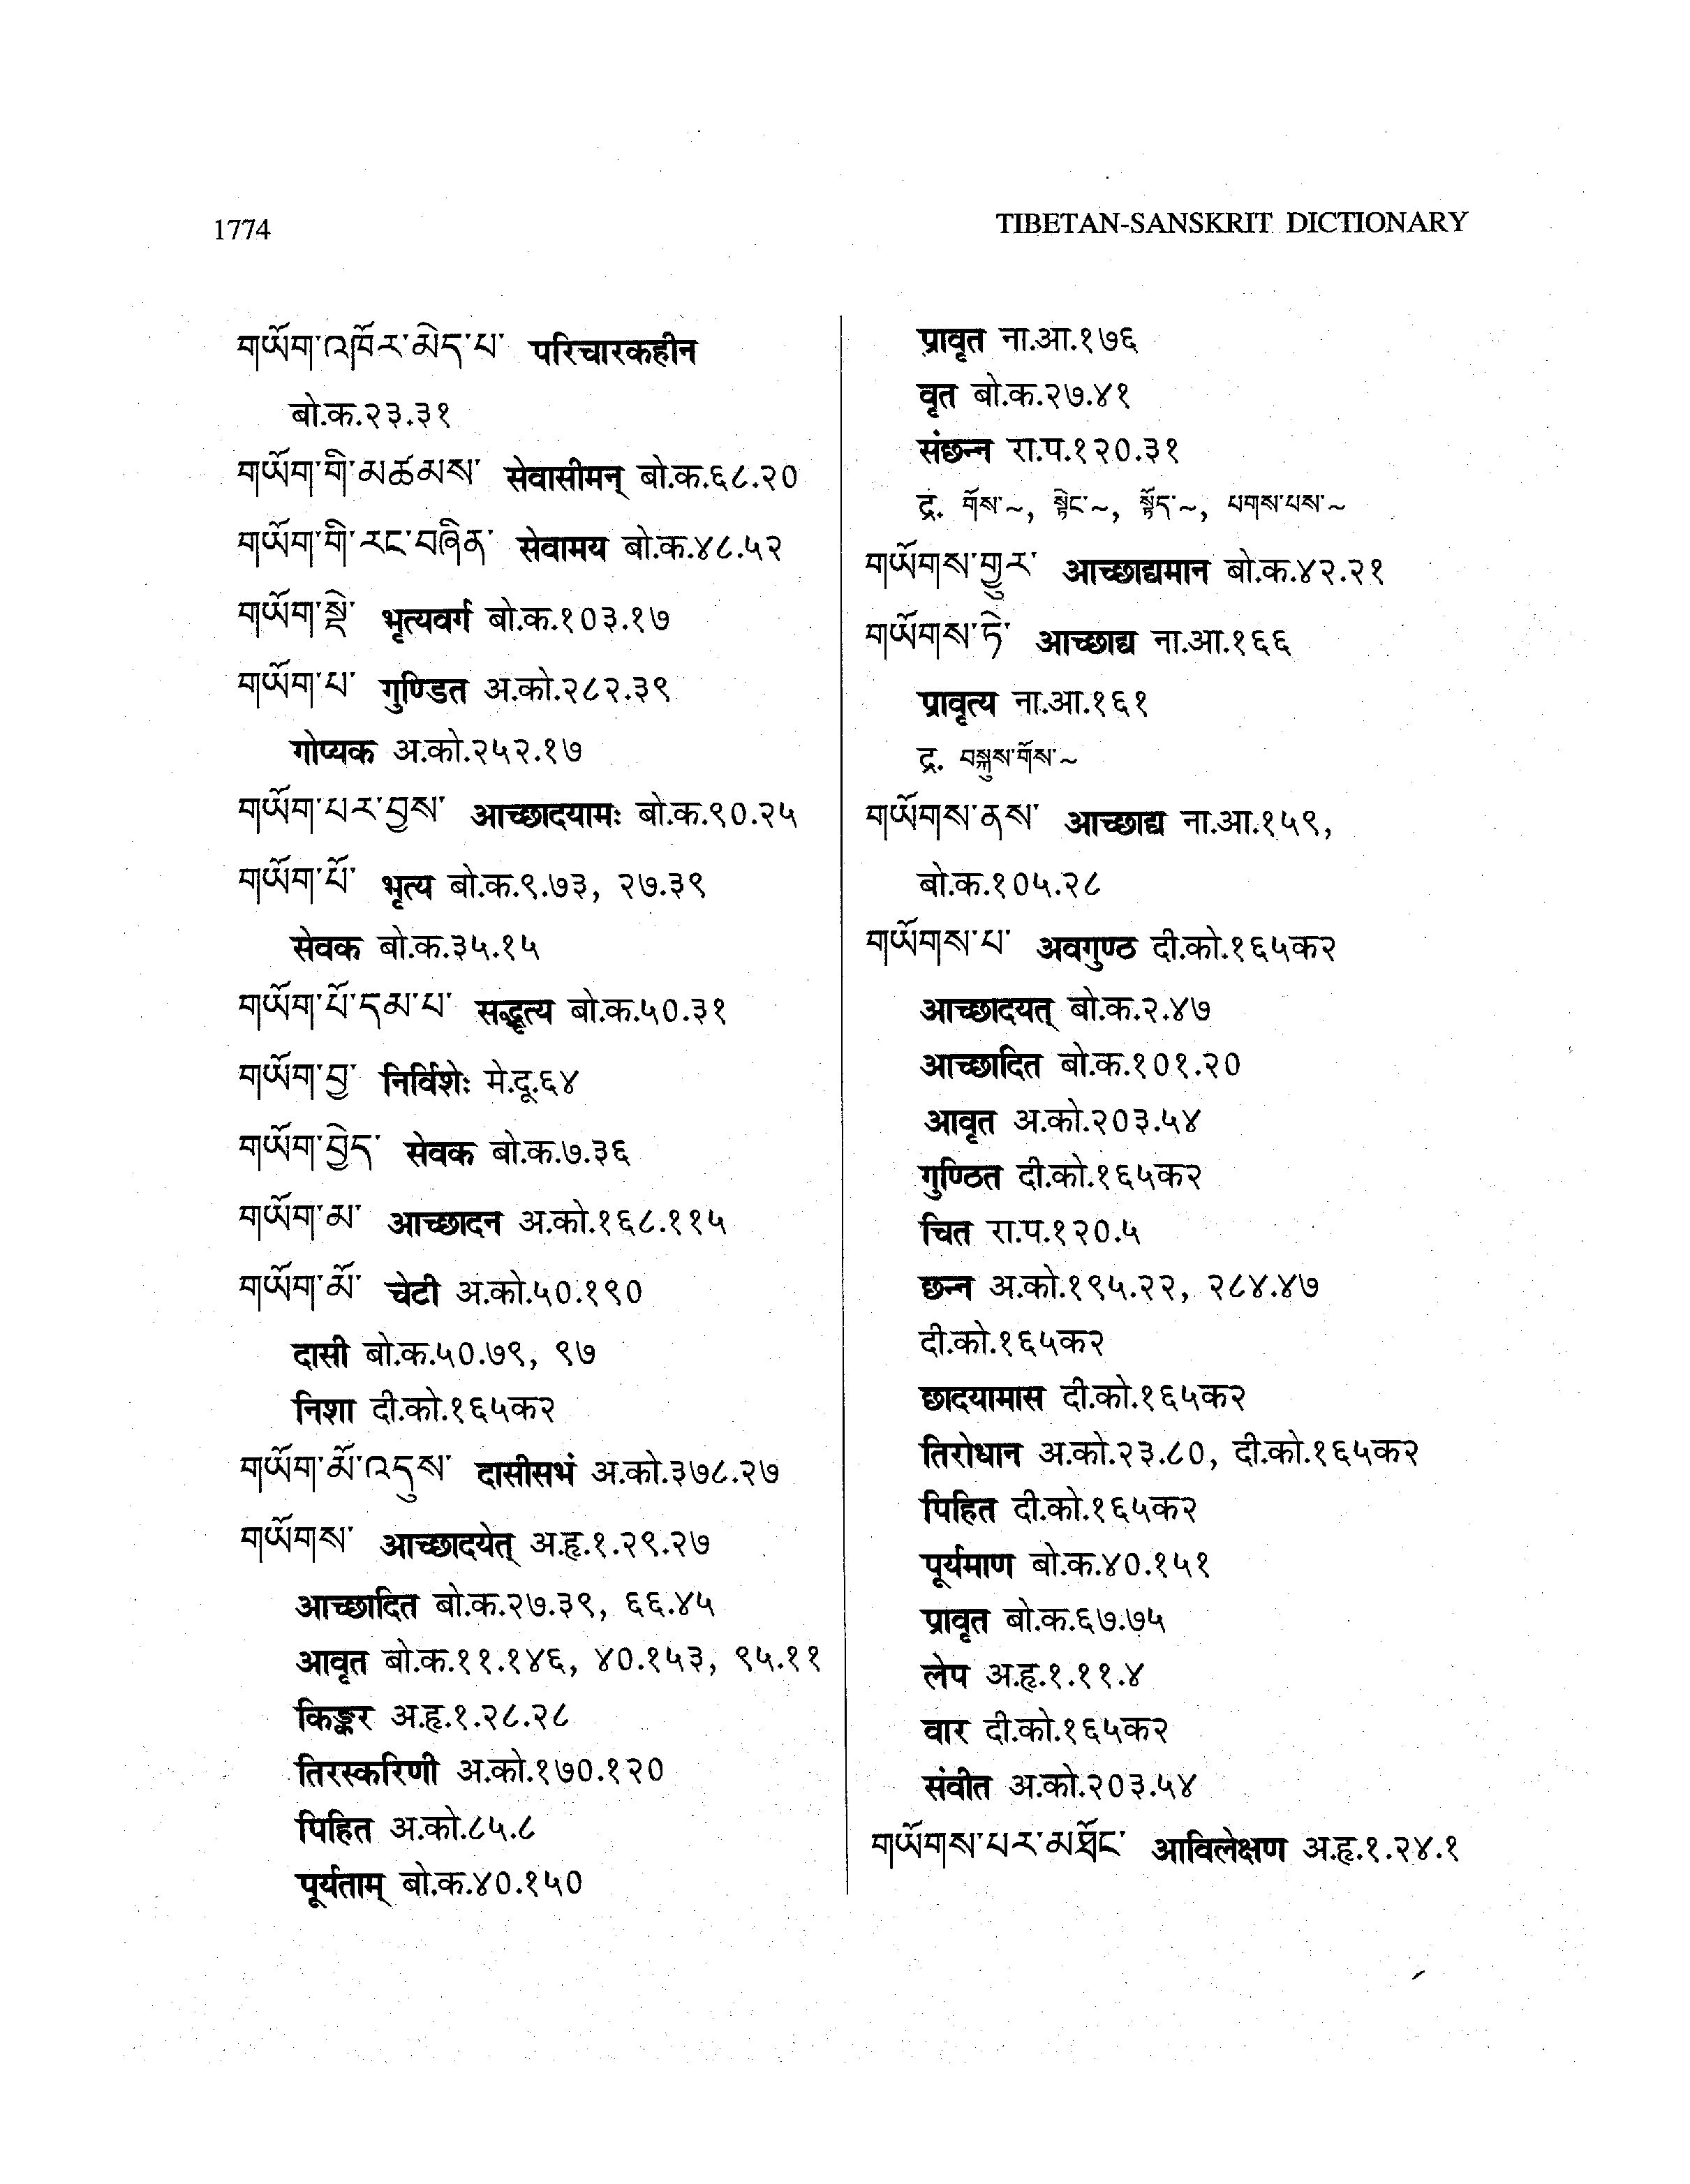 1774
TIBETAN-SANSKRIT DICTIONARY
གཡོག་འཁོར་མེད་པ་ परिचारकहीन
बो.क.२३.३१
གཡོག་གི་མཚམས་ सेवासीमन् बो.क.६८.२०
གཡོག་གི་རང་བཞིན་ सेवामय बो.क.४८.५२
གཡོག་སྡེ་ भृत्यवर्ग बो.क.१०३.१७
གཡོག་པ་ गुण्डित अ.को.२८२.३९
गोप्यक अ.को.२५२.१७
གཡོག་པར་བྱས་ आच्छादयामः बो.क.९०.२५
གཡོག་པོ་ भृत्य बो.क.९.७३, २७.३९
सेवक बो.क.३५.१५
གཡོག་པོ་དམ་པ་ सद्भृत्य बो.क.५०.३१
གཡོག་བྱ་ निर्विशेः मे.दू.६४
གཡོག་བྱེད་ सेवक बो.क.७.३६
གཡོག་མ་ आच्छादन अ.को.१६८.११५
གཡོག་མོ་ चेटी अ.को.५०.१९०
दासी बो.क.५०.७९, ९७
निशा दी.को.१६५क२
གཡོག་མོ་འདུས་ दासीसभं अ.को.३७८.२७
གཡོགས་ आच्छादयेत् अ.हृ.१.२९.२७
आच्छादित बो.क.२७.३९, ६६.४५
आवृत बो.क.११.१४६, ४०.१५३, ९५.११
किङ्कर अ.हृ.१.२८.२८
तिरस्करिणी अ.को.१७०.१२०
पिहित अ.को.८५.८
पूर्यताम् बो.क.४०.१५०
प्रावृत ना.आ.१७६
वृत बो.क.२७.४१
संछन्न रा.प.१२०.३१
द्र. གོས་~, སྟེང་~, སྟོད་~, པགས་པས་~
གཡོགས་གྱུར་ आच्छाद्यमान बो.क.४२.२१
གཡོགས་ཏེ་ आच्छाद्य ना.आ.१६६
प्रावृत्य ना.आ.१६१
द्र. བསྐུས་གོས་~
གཡོགས་ནས་ आच्छाद्य ना.आ.१५९,
बो.क.१०५.२८
གཡོགས་པ་ अवगुण्ठ दी.को.१६५क२
आच्छादयत् बो.क.२.४७
आच्छादित बो.क.१०१.२०
आवृत अ.को.२०३.५४
गुण्ठित दी.को.१६५क२
चित रा.प.१२०.५
छन्न अ.को.१९५.२२, २८४.४७
दी.को.१६५क२
छादयामास दी.को.१६५क२
तिरोधान अ.को.२३.८०, दी.को.१६५क२
पिहित दी.को.१६५क२
पूर्यमाण बो.क.४०.१५१
प्रावृत बो.क.६७.७५
लेप अ.हृ.१.११.४
वार दी.को.१६५क२
संवीत अ.को.२०३.५४
གཡོགས་པར་མཐོང་ आविलेक्षण अ.हृ.१.२४.१